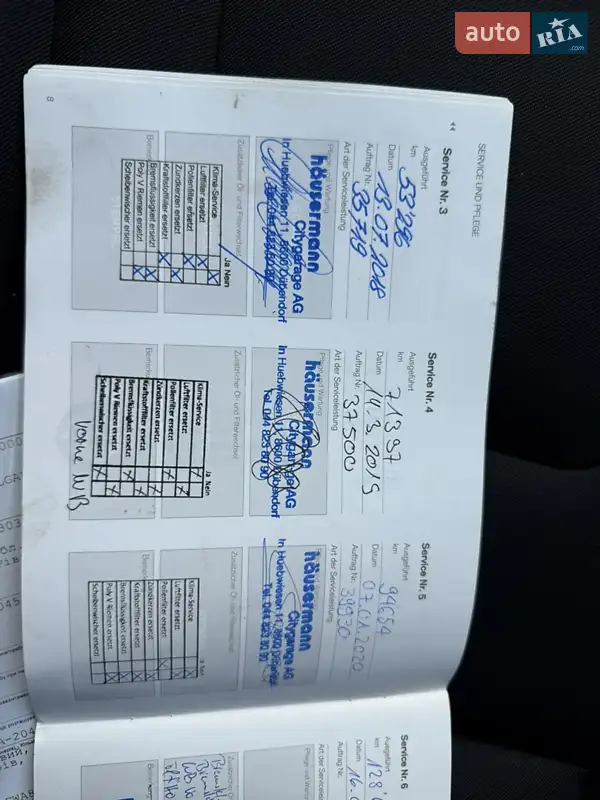 auto RIA .com
8
SERVICE UND PFLEGE
Service Nr. 3
Ausgeführt
km 53'286
Datum 18.07.2018
Auftrag Nr. 35719
Art der Serviceleistung
Pflege und Wartung
häusermann
Citygarage AG
In Huebwiesen 11, 8600 Dübendorf
Zusätzlicher Öl- und Filterwechsel
Ja Nein
Klima-Service
Luftfilter ersetzt
Pollenfilter ersetzt
Zündkerzen ersetzt
Kraftstofffilter ersetzt
Bremsflüssigkeit ersetzt
Poly V Riemen ersetzt
Scheibenwischer ersetzt
Service Nr. 4
Ausgeführt
km 71397
Datum 14.3.2019
Auftrag Nr. 37500
Art der Serviceleistung
Pflege und Wartung
häusermann
Citygarage AG
In Huebwiesen 11, 8600 Dübendorf
Tel. 044 823 80 90
Zusätzlicher Öl- und Filterwechsel
Ja Nein
Klima-Service
Luftfilter ersetzt
Pollenfilter ersetzt
Zündkerzen ersetzt
Kraftstofffilter ersetzt
Bremsflüssigkeit ersetzt
Poly V Riemen ersetzt
Scheibenwischer ersetzt
Service Nr. 5
Ausgeführt
km
Datum
Auftrag Nr.
Art der Serviceleistung
häusermann
Citygarage AG
In Huebwiesen 11, 8600 Dübendorf
Tel. 044 823 80 90
Zusätzlicher Öl- und Filterwechsel
Ja Nein
Klima-Service
Luftfilter ersetzt
Pollenfilter ersetzt
Zündkerzen ersetzt
Kraftstofffilter ersetzt
Bremsflüssigkeit ersetzt
Poly V Riemen ersetzt
Scheibenwischer ersetzt
Service Nr. 6
Ausgeführt
km 128'
Datum 16.
Auftrag Nr.
Art der Serviceleistung
Pflege und Wartung